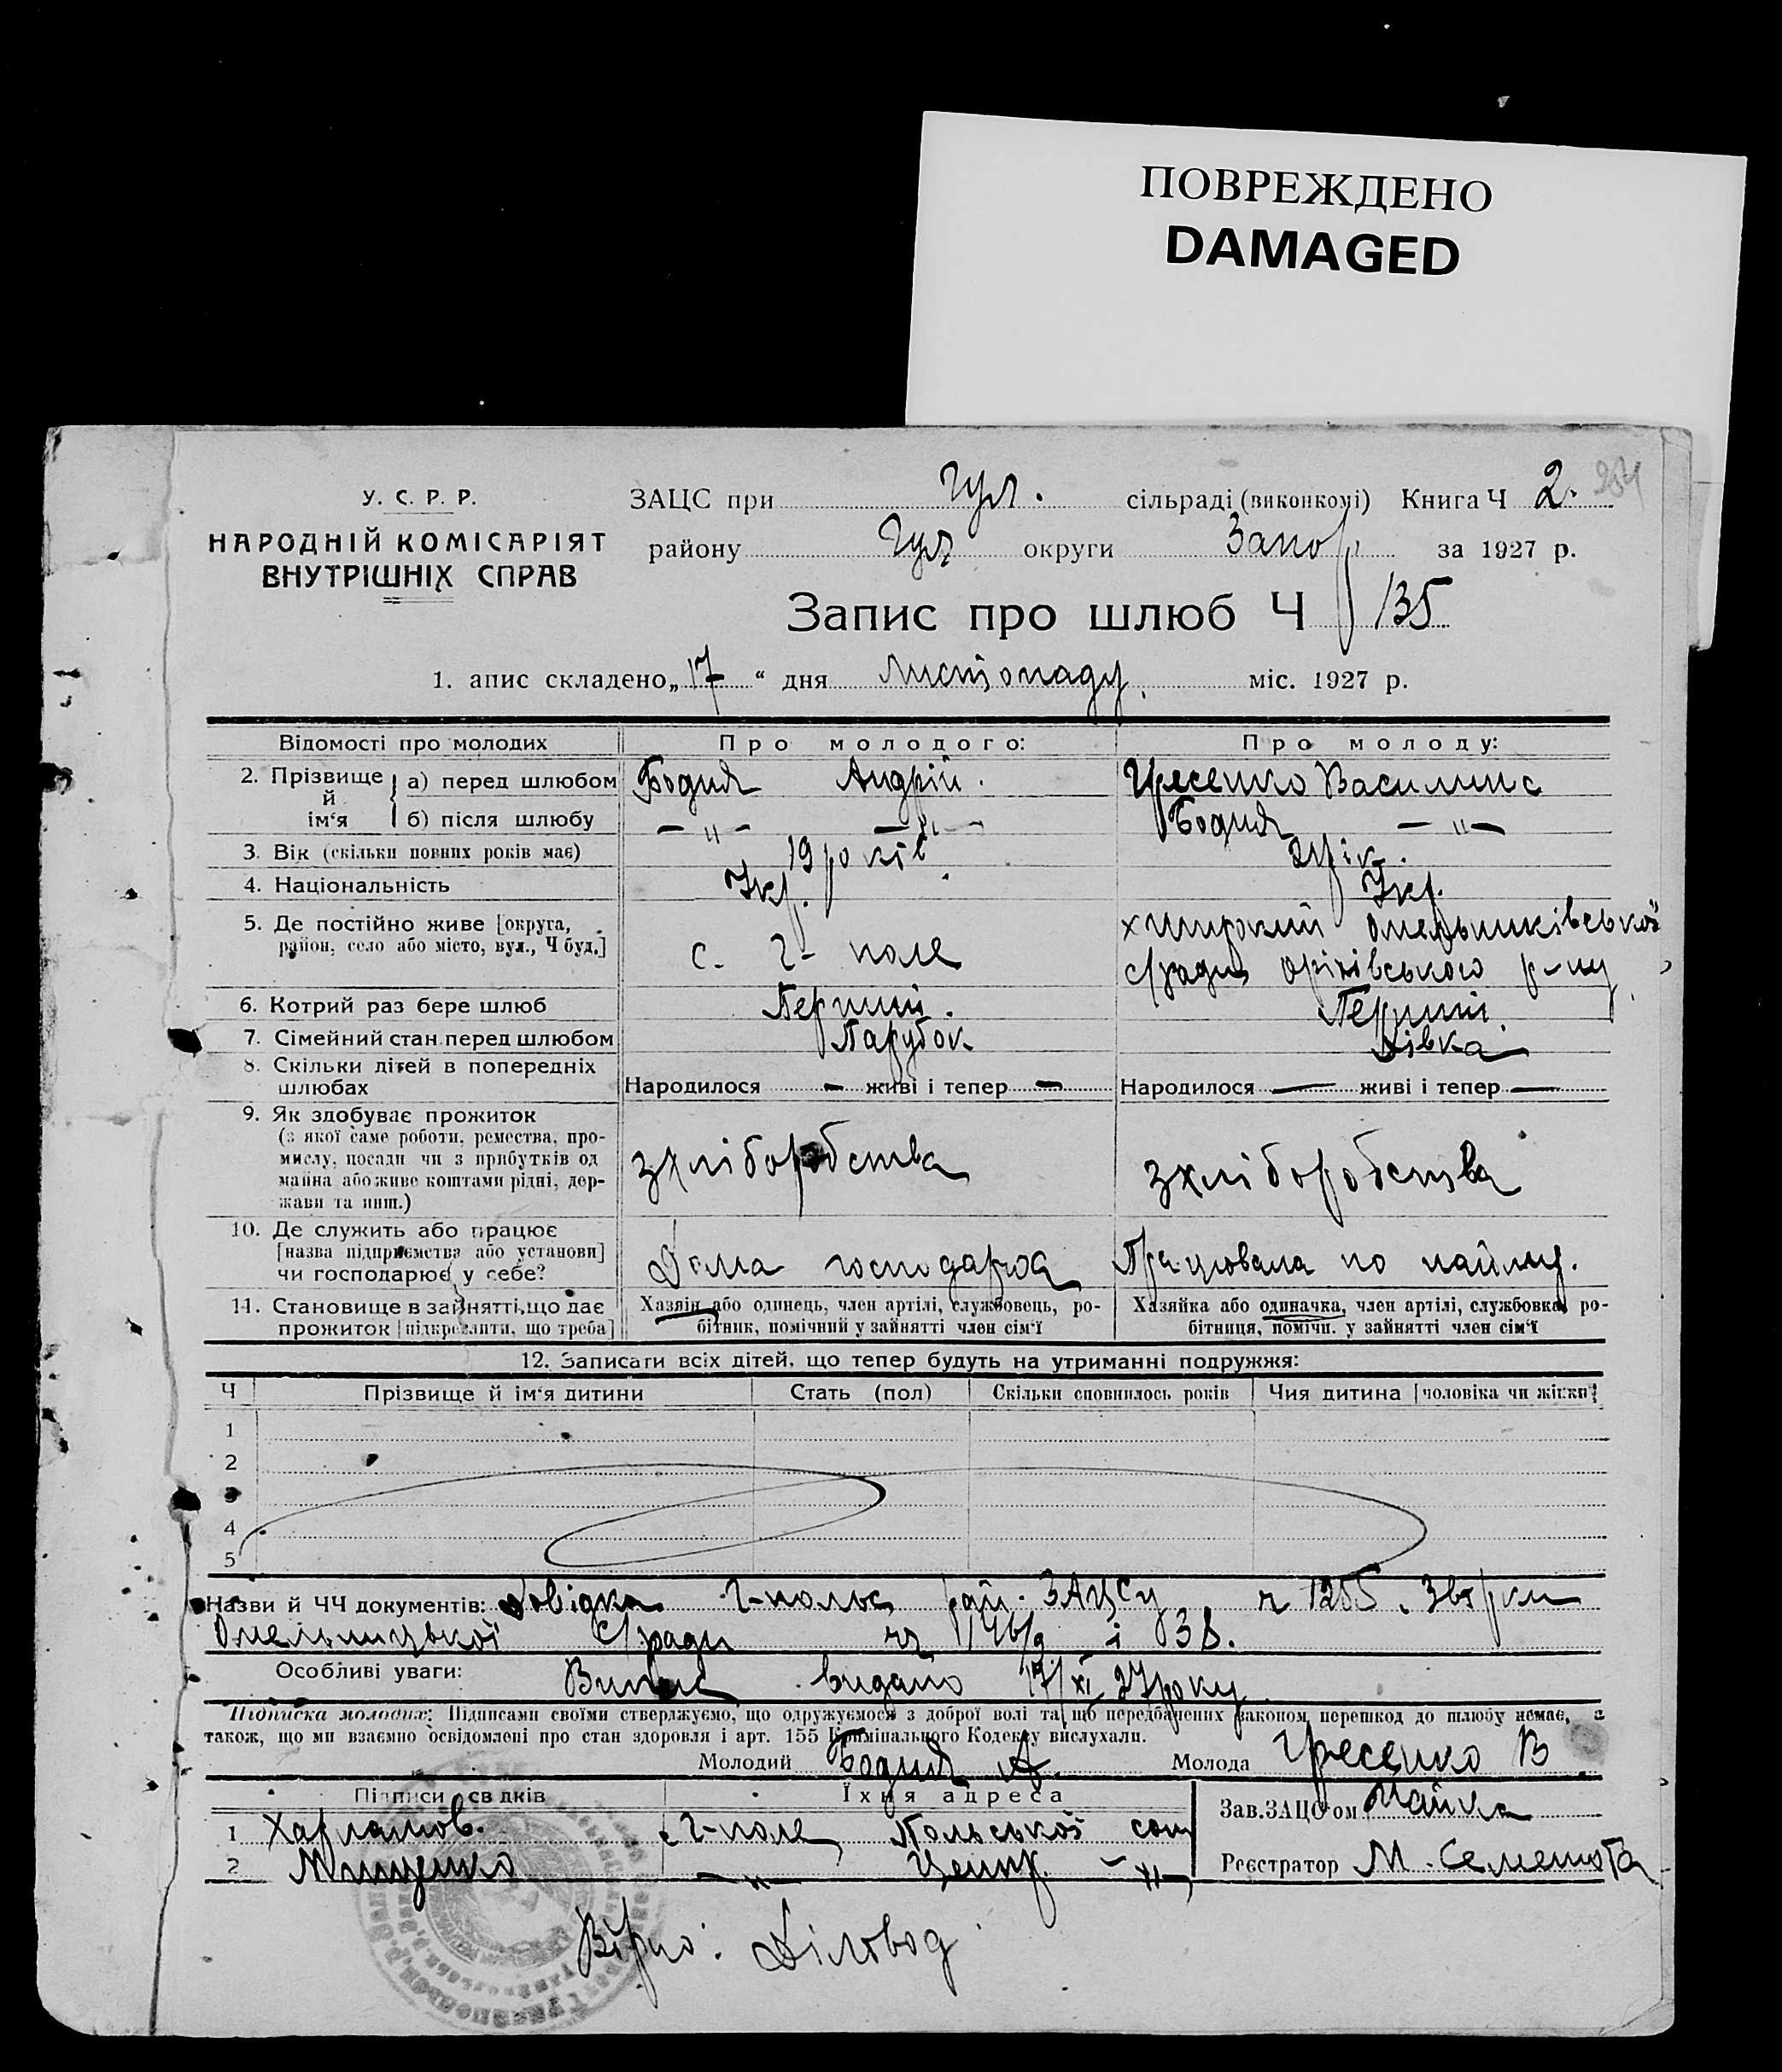 ПОВРЕЖДЕНО
DAMAGED
У. С. Р. Р.
НАРОДНІЙ КОМІСАРІЯТ
ВНУТРІШНІХ СПРАВ
ЗАЦС при Гул. сільраді (виконкомі) Книга Ч 2. 254
району Гул округи Запор за 1927 р.
Запис про шлюб Ч 135
1. апис складено „17“ дня Листопаду міс. 1927 р.
Відомості про молодих Про молодого: Про молоду:
2. Прізвище й ім‘я а) перед шлюбом Бодня Андрій. Василина
б) після шлюбу — " — — " — Бодня — " —
3. Вік (скільки повних років має) 19 років 21 рік.
4. Національність Укр. Укр.
5. Де постійно живе [округа, район, село або місто, вул., Ч буд.] с. Г- поле х Широкий Омельниківської
с/ради Оріхівського р-ну
6. Котрий раз бере шлюб Перший. Перший.
7. Сімейний стан перед шлюбом Парубок Дівка
8. Скільки дітей в попередніх шлюбах Народилося — живі і тепер — Народилося — живі і тепер —
9. Як здобуває прожиток
(з якої саме роботи, ремества, про-
мислу, посади чи з прибутків од
майна або живе коштами рідні, дер-
жави та инш.) зхліборобства зхліборобства
10. Де служить або працює
[назва підприємства або установи]
чи господарює у себе? Дома господарює Працювала по найму.
11. Становище в зайнятті, що дає
прожиток [підкреслити, що треба] Хазяїн або одинець, член артілі, службовець, ро-
бітник, помічний у зайнятті член сім‘ї Хазяйка або одиначка, член артілі, службовка, ро-
бітниця, помічн. у зайнятті член сім‘ї
12. Записати всіх дітей, що тепер будуть на утриманні подружжя:
Ч Прізвище й ім‘я дитини Стать (пол) Скільки сповнилось років Чия дитина [чоловіка чи жінки]
1
2
3
4
5
Назви й ЧЧ документів: Довідка Г-польс рай. ЗАЦСу ч 1255.
Омельницької С/ради і 38.
Особливі уваги: Випис видано 17/XI 27 року
Підписка молодих: Підписами своїми стверджуємо, що одружуємося з доброї волі та що передбачених законом перешкод до шлюбу немає, а
також, що ми взаємно освідомлені про стан здоровля і арт. 155 Кримінального Кодексу вислухали.
Молодий Бодня А. Молода В
Підписи св дків Їхня адреса Зав. ЗАЦС‘ом
1 Харламов. с Г-поле Польської сот
2 Мищенко — " — Центр. — " — Реєстратор М.
Вірно: Діловод